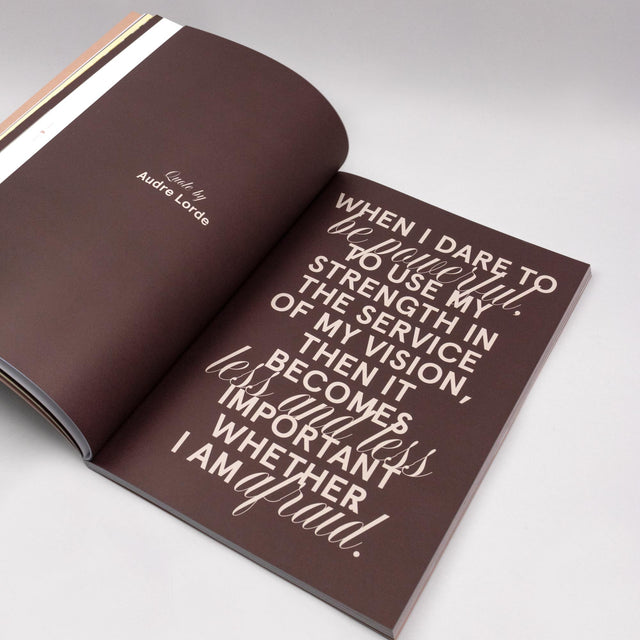 Quote by
Audre Lorde
WHEN I DARE TO
be powerful.
TO USE MY
STRENGTH IN
THE SERVICE
OF MY VISION,
THEN IT
BECOMES
less and less
IMPORTANT
WHETHER
I AM afraid.